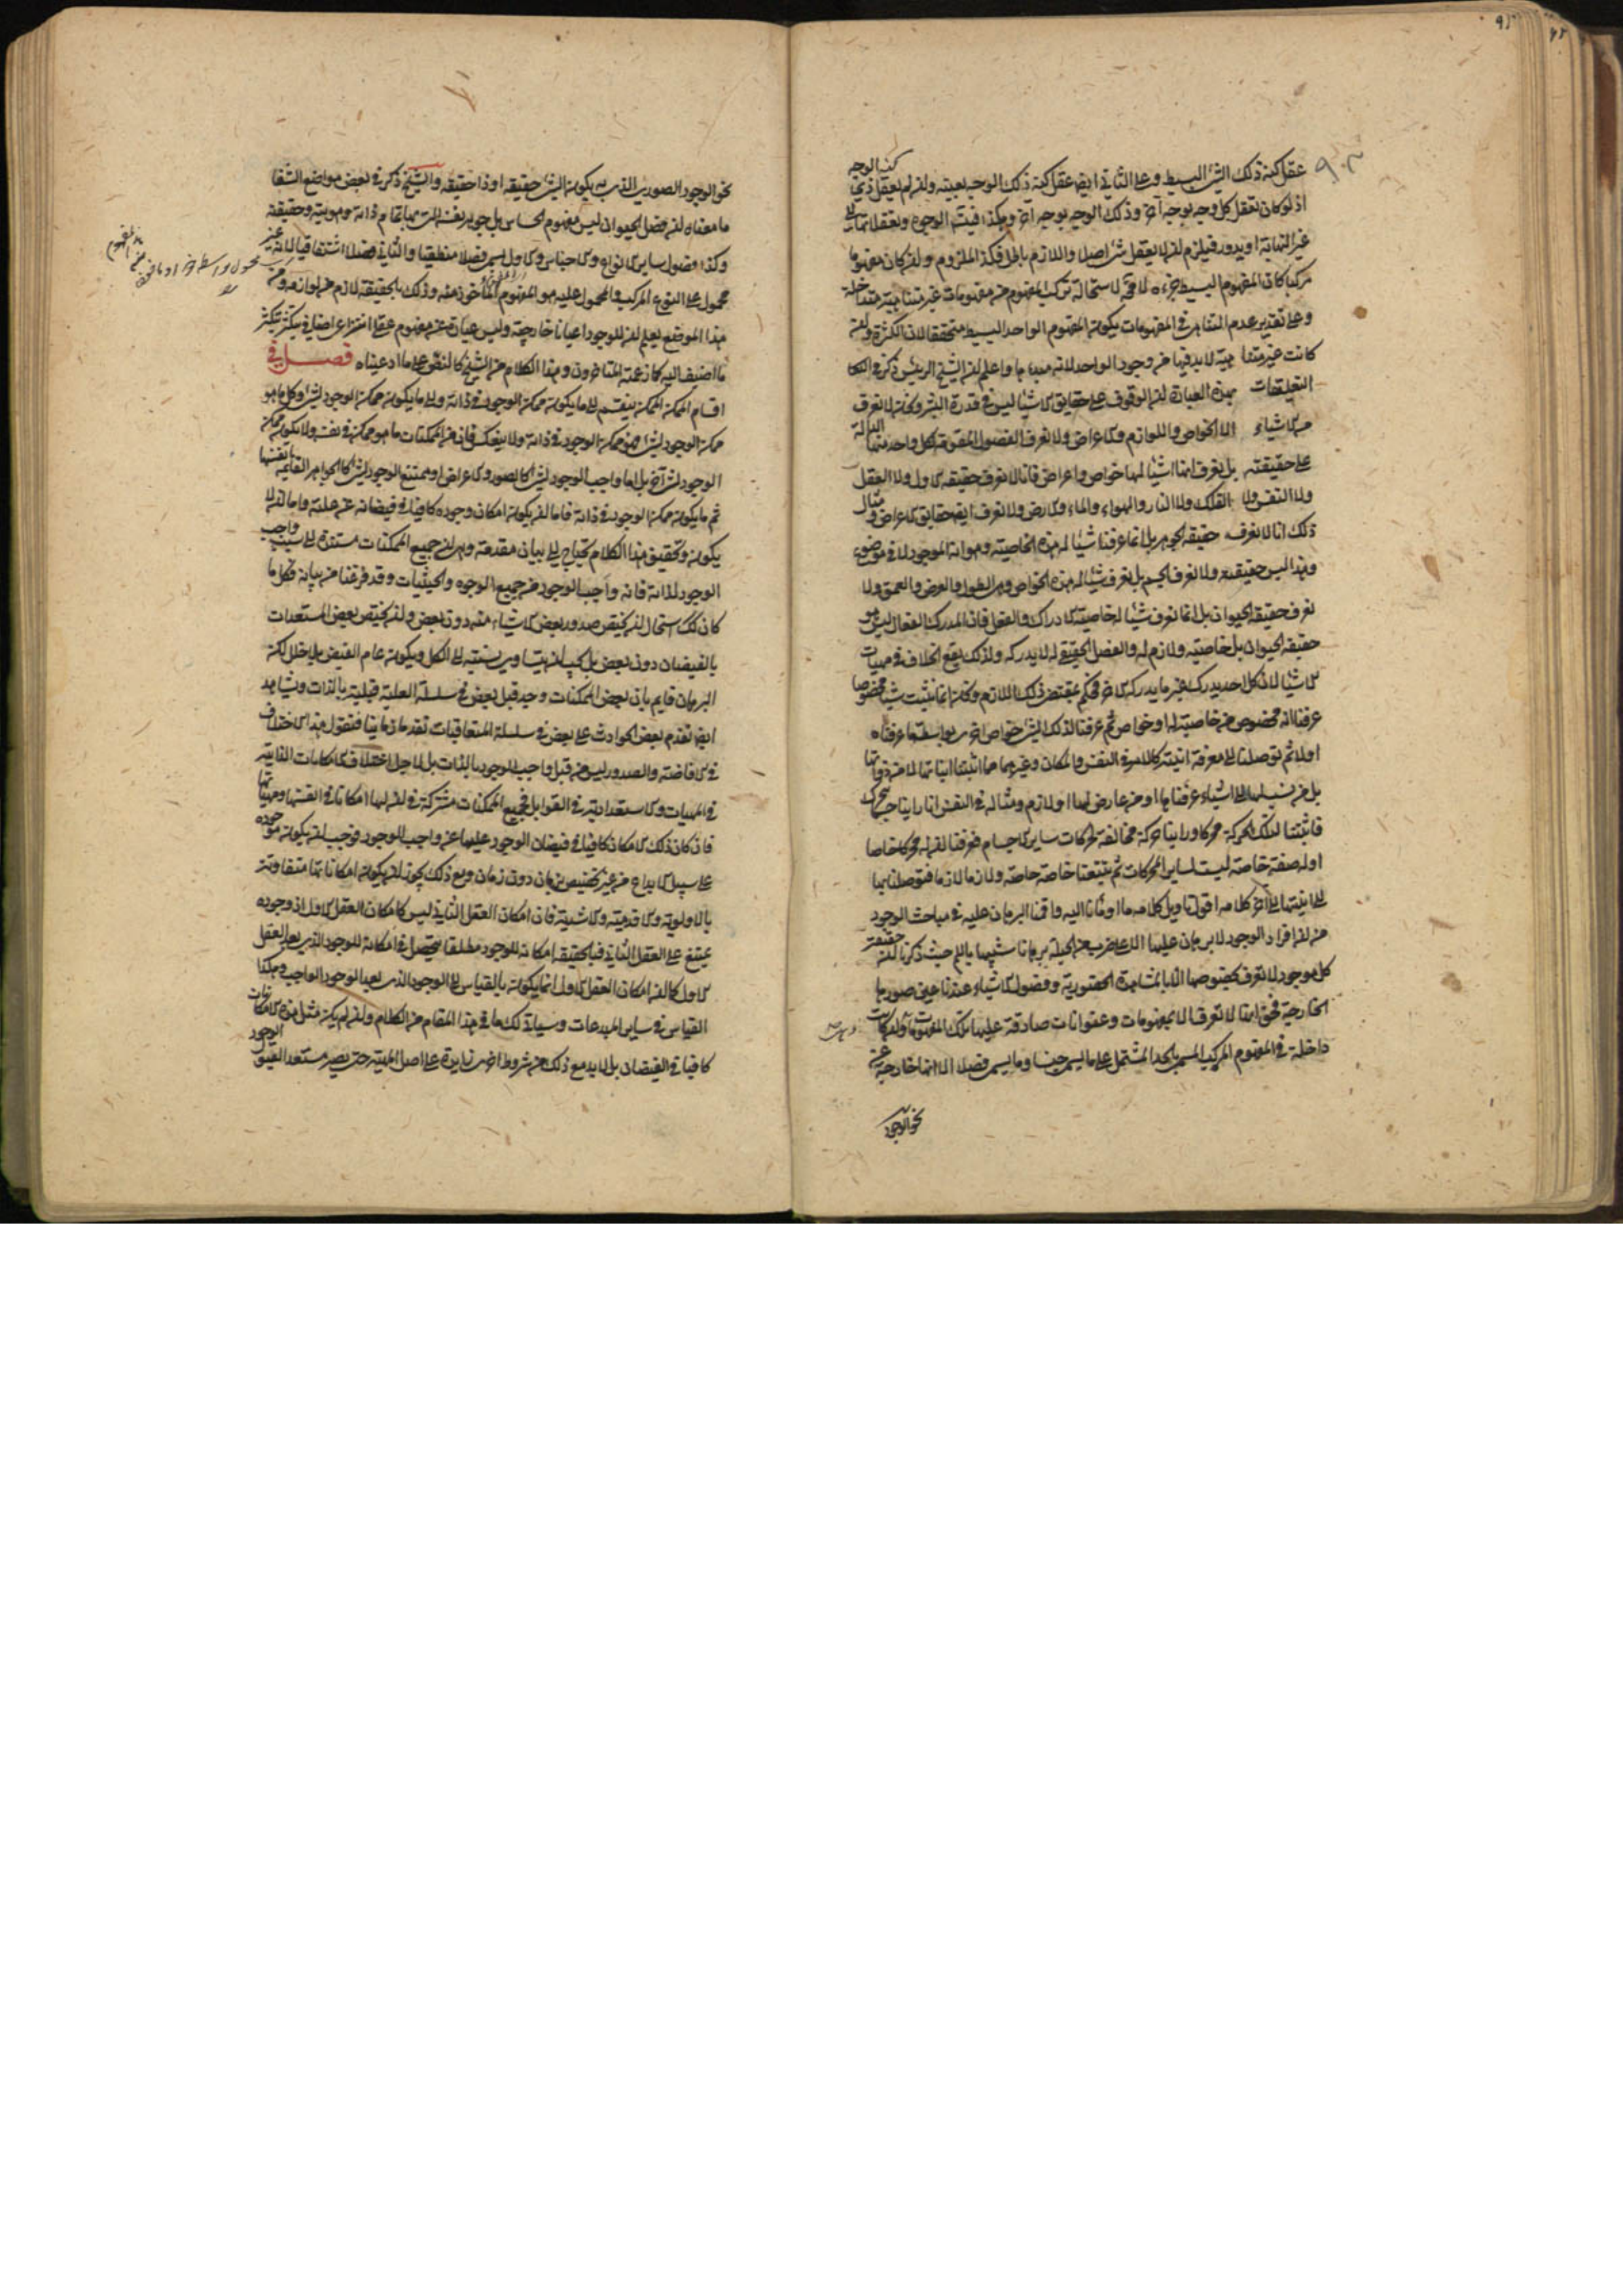 عقل كنه ذلك الشئ البسيط وعلى الثاني ايضا عقل كنه ذلك الوجه بعينه وان لم يعقل ذي كنه الوجه
اذ لو كان تعقل كل وجه بوجه آخر وذلك الوجه بوجه آخر وهكذا فيتم الوجوه وتعقلاتها الى
غير النهاية او يدور فيلزم ان لا يعقل شئ اصلا واللازم باطل فكذا الملزوم وان كان مفهوما
مركبا كان المفهوم البسيط جزءه لا محة لاستحالة تركب المفهوم من مفهومات غير متناهية متداخلة
وعلى تقدير عدم التناهي في المفهومات يكون المفهوم الواحد البسيط متحققا لان الكثرة وان
كانت غير متناهية لابد فيها من وجود الواحد لانه مبدءها واعلم ان الشيخ الرئيس ذكر في
التعليقات بهذه العبارة ان الوقوف على حقايق الاشيا ليس في قدرة البشر ونحن لا نعرف
من الاشياء الا الخواص واللوازم والاعراض ولا نعرف الفصول المقومة لكل واحد منها الدالة
على حقيقته بل نعرف انها اشيا لها خواص واعراض فانا لا نعرف حقيقة الاول ولا العقل
ولا النفس ولا الفلك ولا النار والهواء والماء والارض ولا نعرف ايضا حقايق الاعراض ومثال
ذلك انا لا نعرف حقيقة الجوهر بل انما عرفنا شيئا له هذه الخاصية وهو انه الموجود لا في موضوع
وهذا ليس حقيقته ولا نعرف الجسم بل نعرف شيئا له هذه الخواص وهي الطول والعرض والعمق ولا
نعرف حقيقة الحيوان بل انما نعرف شيئا له خاصية الادراك والفعل فان المدرك الفعال ليس هو
حقيقة الحيوان بل خاصيته ولازم له والفصل الحقيقي له لا يدركه ولذلك يقع الخلاف في مهيات
الاشيا لان كل احد يدرك غير ما يدركه الاخر فحكم بمقتضى ذلك اللازم ونحن انما نثبت شيئا مخصوصا
عرفنا انه مخصوص من خاصية له او خواص ثم عرفنا لذلك الشئ خواص اخرى بواسطة ما عرفناه
اولا ثم توصلنا الى معرفة انيته كالامر في النفس والمكان وغيرهما مما اثبتنا انياتها لا من ذواتها
بل من نسب لها الى اشياء عرفناها او من عارض لها او لازم ومثاله في النفس انا راينا جسما يتحرك
فاثبتنا لتلك الحركة محركا وراينا حركة مخالفة لحركات ساير الاجسام فعرفنا ان له محركا خاصا
او له صفة خاصة ليست لساير المحركات ثم تتبعنا خاصة خاصة ولازما لازما فتوصلنا بها
الى انيتها الى آخر كلامه اقول تاويل كلامه ما اومأنا اليه واقمنا البرهان عليه في مباحث الوجود
من ان افراد الوجود لا برهان عليها الا على ضرب من الحيلة برهانا شبيها باللم حيث ذكرنا ان حقيقة
كل موجود لا تعرف بخصوصها الا بالمشاهدة الحضورية وفصول الاشياء عندنا عين صورها
الخارجية فحق انها لا تعرف الا بمفهومات وعنوانات صادقة عليها وتلك المفهومات وان كانت
داخلة في المفهوم المركب المسمى بالحد المشتمل على ما يسمى جنسا وما يسمى فصلا الا انها خارجة عن
نحو الوجود
نحو الوجود الصوري الذي به يكون الشئ حقيقة او ذا حقيقة والشيخ ذكر في بعض مواضع الشفا
ما معناه ان فصل الحيوان ليس مفهوم الحساس بل جوهر نفسه التي بها تمام ذاته وهويته وحقيقته
وكذا فصول ساير الانواع والاجناس والاول يسمى فصلا منطقيا والثاني فصلا اشتقاقيا لانه غير
محمول على النوع المركب والمحمول عليه هو المفهوم الماخوذ منه وذلك بالحقيقة لازم من لوازمه ومن
هذا الموضع يعلم ان للوجود اعيانا خارجية وليس عبارة عن مفهوم عقلي انتزاعي اضافي يتكثر بتكثر
ما اضيف اليه كما زعمه المتاخرون وهذا الكلام من الشيخ كالنص على ما ادعيناه فصل في
اقسام الممكن الممكن ينقسم الى ما يكون ممكن الوجود في ذاته والى ما يكون ممكن الوجود لشئ وكل ما هو
ممكن الوجود لشئ فهو ممكن الوجود في ذاته ولا ينعكس فان من الممكنات ما هو ممكن في نفسه ولا يكون ممكن
الوجود لشئ آخر بل اما واجب الوجود لشئ كالصور والاعراض او ممتنع الوجود لشئ كالجواهر القائمة بانفسها
ثم ما يكون ممكن الوجود في ذاته فاما ان يكون امكان وجوده كافيا في فيضانه عن علته واما ان لا
يكون وتحقيق هذا الكلام يحتاج الى بيان مقدمة وهي ان جميع الممكنات مستندة الى سبب واجب
الوجود لذاته فانه واجب الوجود من جميع الوجوه والحيثيات وقد فرغنا من بيانه فكل ما
كان كك استحال ان يختص صدور بعض الاشياء منه دون بعض وان يختص بعض المستعدات
بالفيضان دون بعض بل يجب ان يتساوى نسبته الى الكل ويكون عام الفيض بلا خلل لكن
البرهان قايم بان لبعض الممكنات وجد قبل بعض في سلسلة العلية قبلية بالذات ونشاهد
ايضا تقدم بعض الحوادث على بعض في سلسلة المتعاقبات تقدما زمانيا فنقول هذا الاختلاف
في الافاضة والصدور ليس من قبل واجب الوجود بالذات بل لاجل اختلاف الامكانات الذاتية
في المهيات والاستعدادية في القوابل فجميع الممكنات مشتركة في ان لها امكانا في انفسها ومهياتها
فان كان ذلك الامكان كافيا في فيضان الوجود عليها عن واجب الوجود فوجب ان يكون موجوده
على سبيل الابداع من غير تخصيص بزمان دون زمان ومع ذلك يجوز ان يكون امكاناتها متفاوتة
بالاولوية والاقدمية والاشدية فان امكان العقل الثاني ليس كامكان العقل الاول اذ وجوده
يمتنع على العقل الثاني فبالحقيقة امكانه للوجود مطلقا يتحصل في امكانه للوجود الذي بعد العقل
الاول كما ان امكان العقل الاول انما يكون بالقياس الى الوجود الذي بعد الوجود الواجب وهكذا
القياس في ساير المبدعات وسياتي لك ما في هذا المقام من الكلام وان لم يكن مثل هذه الامكانات
كافيا في الفيضان بل لابد مع ذلك من شروط اخرى زايدة على اصل المهية حتى يصير مستعدا لقبول الوجود